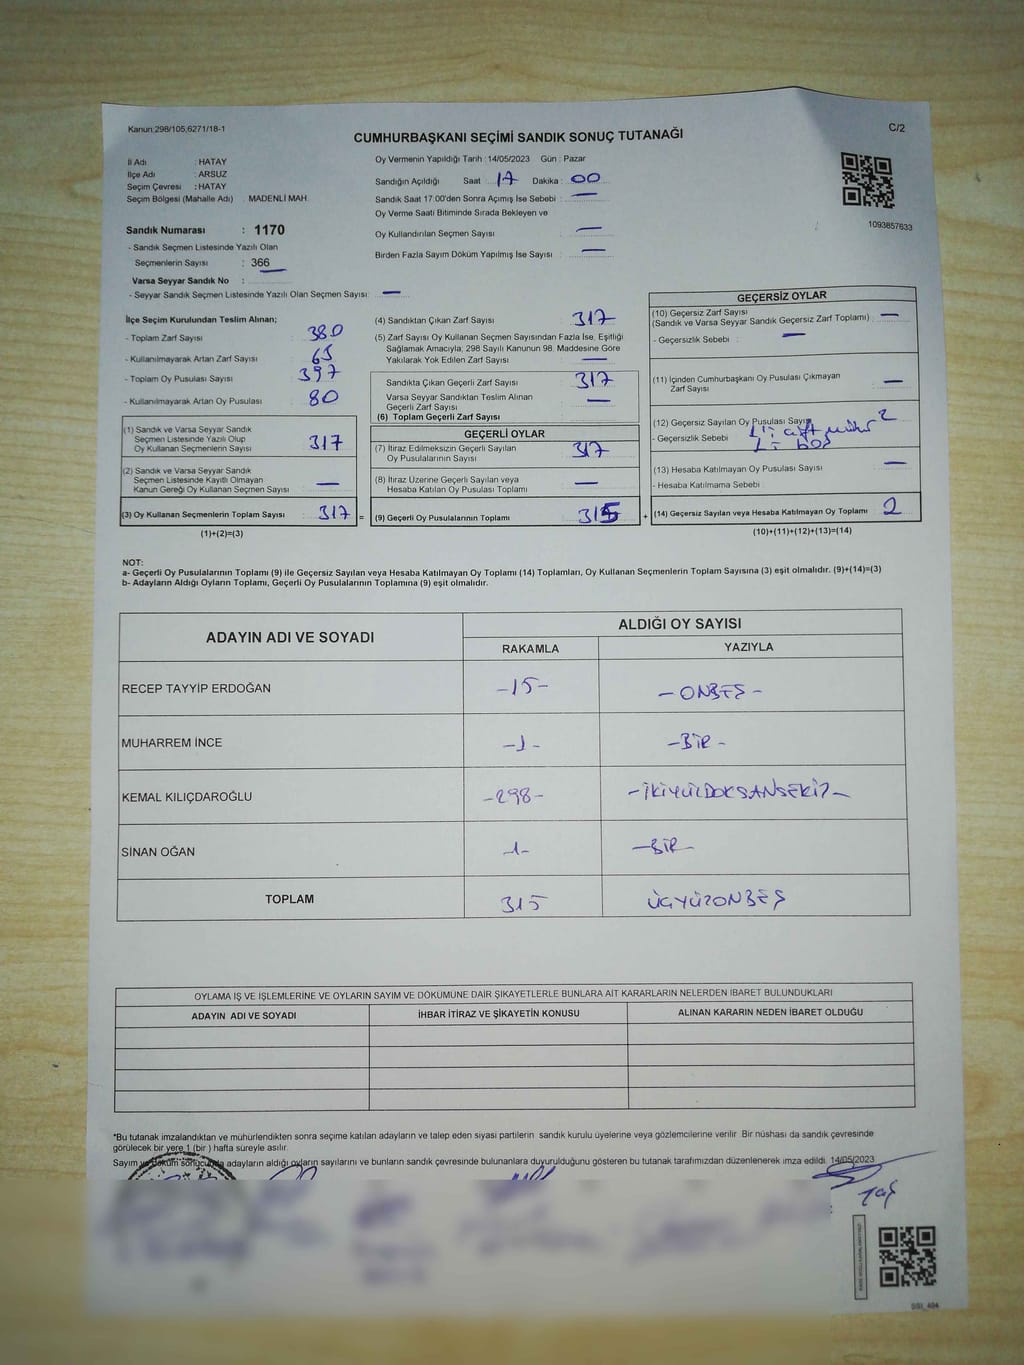 Kanun:298/105,6271/18-1
C/2
CUMHURBAŞKANI SEÇİMİ SANDIK SONUÇ TUTANAĞI
İl Adı : HATAY
İlçe Adı : ARSUZ
Seçim Çevresi : HATAY
Seçim Bölgesi (Mahalle Adı) : MADENLİ MAH.
Sandık Numarası : 1170
- Sandık Seçmen Listesinde Yazılı Olan
Seçmenlerin Sayısı : 366
Varsa Seyyar Sandık No :
- Seyyar Sandık Seçmen Listesinde Yazılı Olan Seçmen Sayısı: —
Oy Vermenin Yapıldığı Tarih : 14/05/2023 Gün : Pazar
Sandığın Açıldığı Saat : 17 Dakika : 00
Sandık Saat 17:00'den Sonra Açımış İse Sebebi : —
Oy Verme Saati Bitiminde Sırada Bekleyen ve
Oy Kullandırılan Seçmen Sayısı : —
Birden Fazla Sayım Döküm Yapılmış İse Sayısı : —
1093857633
İlçe Seçim Kurulundan Teslim Alınan;
- Toplam Zarf Sayısı : 380
- Kullanılmayarak Artan Zarf Sayısı : 63
- Toplam Oy Pusulası Sayısı : 397
- Kullanılmayarak Artan Oy Pusulası : 80
(1) Sandık ve Varsa Seyyar Sandık
Seçmen Listesinde Yazılı Olup
Oy Kullanan Seçmenlerin Sayısı : 317
(2) Sandık ve Varsa Seyyar Sandık
Seçmen Listesinde Kayıtlı Olmayan
Kanun Gereği Oy Kullanan Seçmen Sayısı : —
(3) Oy Kullanan Seçmenlerin Toplam Sayısı : 317 =
(1)+(2)=(3)
(4) Sandıktan Çıkan Zarf Sayısı : 317
(5) Zarf Sayısı Oy Kullanan Seçmen Sayısından Fazla İse, Eşitliği
Sağlamak Amacıyla; 298 Sayılı Kanunun 98. Maddesine Göre
Yakılarak Yok Edilen Zarf Sayısı : —
Sandıkta Çıkan Geçerli Zarf Sayısı : 317
Varsa Seyyar Sandıktan Teslim Alınan
Geçerli Zarf Sayısı : —
(6) Toplam Geçerli Zarf Sayısı
GEÇERLİ OYLAR
(7) İtiraz Edilmeksizin Geçerli Sayılan
Oy Pusulalarının Sayısı : 317
(8) İtiraz Üzerine Geçerli Sayılan veya
Hesaba Katılan Oy Pusulası Toplamı : —
(9) Geçerli Oy Pusulalarının Toplamı : 315 +
GEÇERSİZ OYLAR
(10) Geçersiz Zarf Sayısı
(Sandık ve Varsa Seyyar Sandık Geçersiz Zarf Toplamı) : —
- Geçersizlik Sebebi : —
(11) İçinden Cumhurbaşkanı Oy Pusulası Çıkmayan
Zarf Sayısı : —
(12) Geçersiz Sayılan Oy Pusulası Sayısı 2
- Geçersizlik Sebebi 1: çift mühür
1: boş
(13) Hesaba Katılmayan Oy Pusulası Sayısı : —
- Hesaba Katılmama Sebebi :
(14) Geçersiz Sayılan veya Hesaba Katılmayan Oy Toplamı : 2
(10)+(11)+(12)+(13)=(14)
NOT:
a- Geçerli Oy Pusulalarının Toplamı (9) ile Geçersiz Sayılan veya Hesaba Katılmayan Oy Toplamı (14) Toplamları, Oy Kullanan Seçmenlerin Toplam Sayısına (3) eşit olmalıdır. (9)+(14)=(3)
b- Adayların Aldığı Oyların Toplamı, Geçerli Oy Pusulalarının Toplamına (9) eşit olmalıdır.
ADAYIN ADI VE SOYADI
ALDIĞI OY SAYISI
RAKAMLA
YAZIYLA
RECEP TAYYİP ERDOĞAN -15- -ONBEŞ-
MUHARREM İNCE -1- -BİR-
KEMAL KILIÇDAROĞLU -298- -İKİYÜZDOKSANSEKİZ-
SİNAN OĞAN -1- -BİR-
TOPLAM 315 ÜÇYÜZONBEŞ
OYLAMA İŞ VE İŞLEMLERİNE VE OYLARIN SAYIM VE DÖKÜMÜNE DAİR ŞİKAYETLERLE BUNLARA AİT KARARLARIN NELERDEN İBARET BULUNDUKLARI
ADAYIN ADI VE SOYADI
İHBAR İTİRAZ VE ŞİKAYETİN KONUSU
ALINAN KARARIN NEDEN İBARET OLDUĞU
*Bu tutanak imzalandıktan ve mühürlendikten sonra seçime katılan adayların ve talep eden siyasi partilerin sandık kurulu üyelerine veya gözlemcilerine verilir. Bir nüshası da sandık çevresinde
görülecek bir yere 1 (bir) hafta süreyle asılır.
Sayım ve Döküm sonucunda adayların aldığı oyların sayılarını ve bunların sandık çevresinde bulunanlara duyurulduğunu gösteren bu tutanak tarafımızdan düzenlenerek imza edildi. 14/05/2023